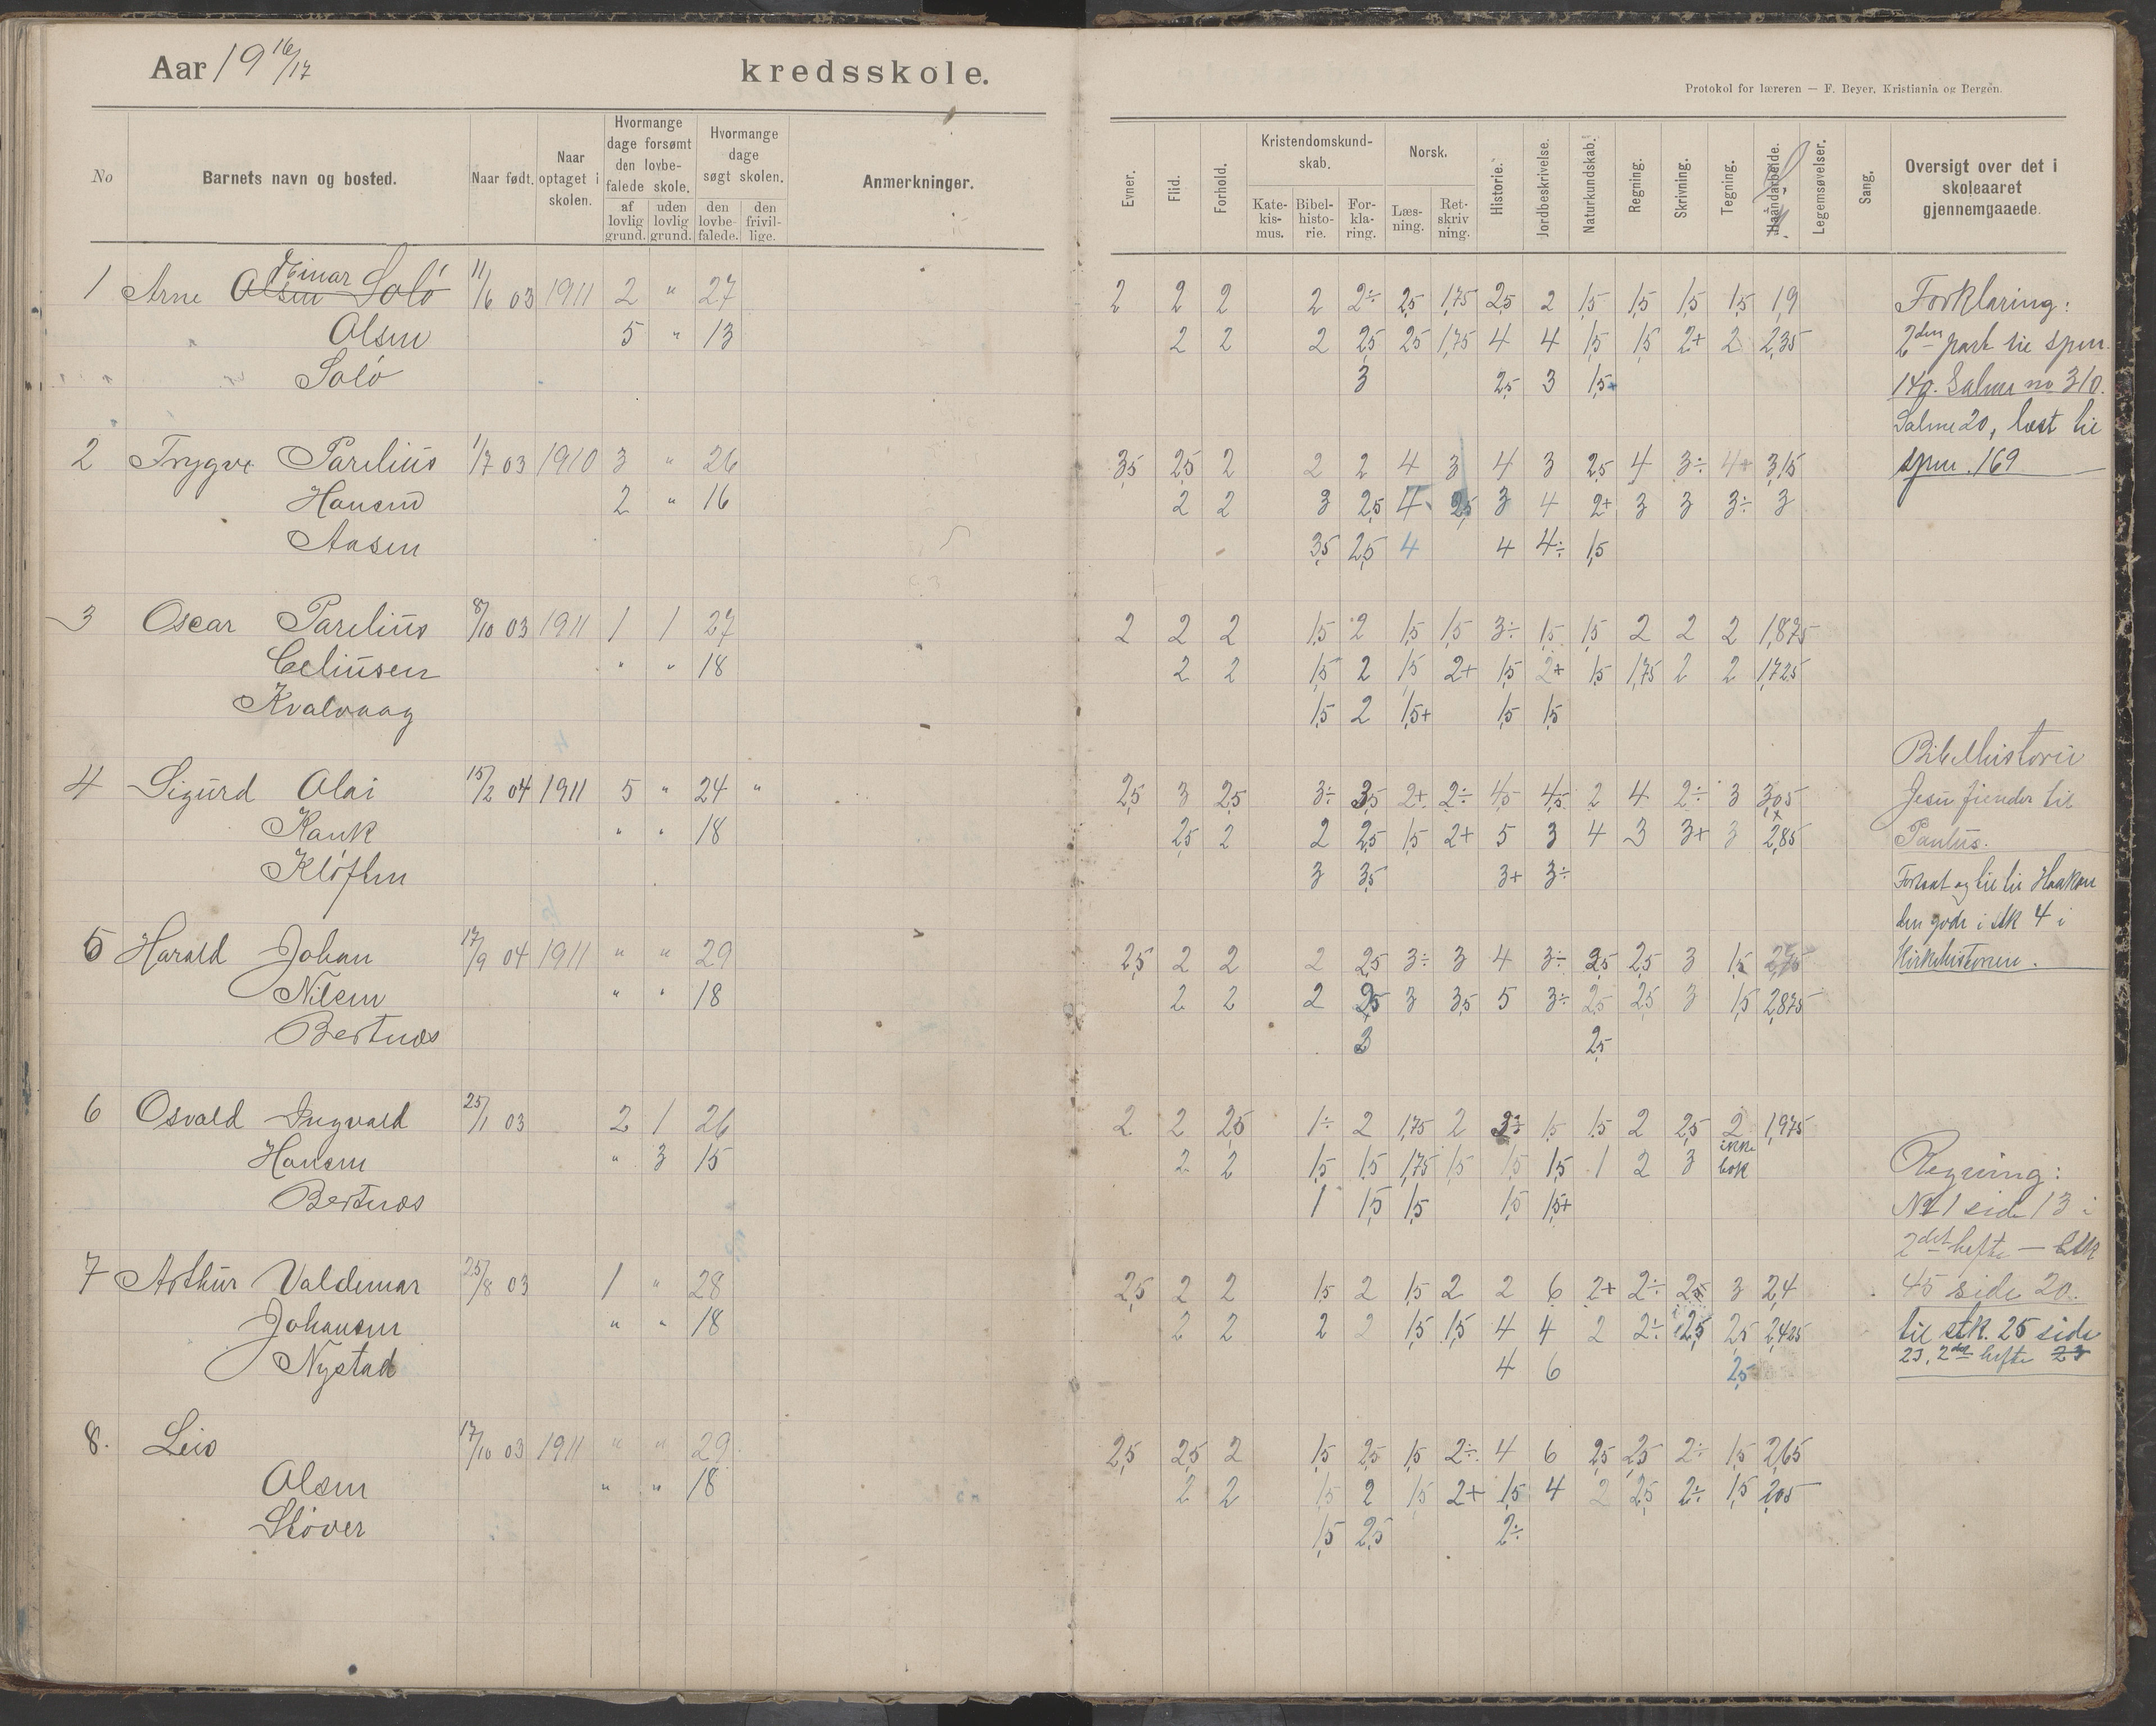 Aar 19 16/17
kredsskole.
No
Barnets navn og bosted.
Naar født.
Naar optaget i skolen.
Hvormange dage forsømt den lovbefalede skole.
af lovlig grund.
uden lovlig grund.
Hvormange dage søgt skolen.
den lovbefalede.
den frivillige.
Anmerkninger.
1 Arne Einar 11/6 03 1911 2 " 27
Olsen 5 " 13
Solö
2 Trygve Parelius 1/7 03 1910 3 " 26
Hansen 2 " 16
Aasen
3 Oscar Parelius 8/10 03 1911 1 1 27
Celiusen " " 18
Kvalvaag
4 Sigurd Olai 15/2 04 1911 5 " 24 "
Hauk " " 18
Klöften
5 Harald Johan 17/9 04 1911 " " 29
Nilsen " " 18
Bertnæs
6 Osvald Ingvald 25/1 03 2 1 26
Hansen " 3 15
Bertnæs
7 Arthur Valdemar 25/8 03 1 " 28
Johansen " " 18
Nystad
8. Leis 17/10 03 1911 " " 29
Olsen " " 18
Støver
Protokol for læreren — F. Beyer, Kristiania og Bergen.
Evner.
Flid.
Forhold.
Kristendomskundskab.
Katekismus.
Bibelhistorie.
Forklaring.
Norsk.
Læsning.
Retskrivning.
Historie.
Jordbeskrivelse.
Naturkundskab.
Regning.
Skrivning.
Tegning.
Haandarbeide.
Legemsøvelser.
Sang.
Oversigt over det i skoleaaret gjennemgaaede.
2 2 2 2 2÷ 2,5 1,75 2,5 2 1,5 1,5 1,5 1,5 1,9
2 2 2 2,5 2,5 1,75 4 4 1,5 1,5 2+ 2 2,35
3 2,5 3 1,5+
3,5 2,5 2 2 2 4 3 4 3 2,5 4 3÷ 4+ 3,15
2 2 3 2,5 4 2,5 3 4 2+ 3 3 3÷ 3
3,5 2,5 4 4 4÷ 1,5
2 2 2 1,5 2 1,5 1,5 3÷ 1,5 1,5 2 2 2 1,875
2 2 1,5 2 1,5 2+ 1,5 2+ 1,5 1,75 2 2 1,725
1,5 2 1,5+ 1,5 1,5
2,5 3 2,5 3÷ 3,5 2+ 2÷ 4,5 4,5 2 4 2÷ 3 3,05
2,5 2 2 2,5 1,5 2+ 5 3 4 3 3+ 3 2,85
3 3,5 3+ 3÷
2,5 2 2 2 2,5 3÷ 3 4 3÷ 2,5 2,5 3 1,5 2,75
2 2 2 2,5 3 3,5 5 3÷ 2,5 2,5 3 1,5 2,875
3 2,5
2 2 2,5 1÷ 2 1,75 2 1,5 1,5 2 2,5 2 1,975
2 2 1,5 1,5 1,75 1,5 1,5 1,5 1 2 3 ikke bok
1 1,5 1,5 1,5 1,5+
2,5 2 2 1,5 2 1,5 2 2 6 2+ 2÷ 2,5 3 2,4
2 2 2 2 1,5 1,5 4 4 2 2÷ 2,5 2,5 2,425
4 6 2,5
2,5 2,5 2 1,5 2,5 1,5 2÷ 4 6 2,5 2,5 2÷ 1,5 2,65
2 2 1,5 2 1,5 2+ 1,5 4 2 2,5 2÷ 1,5 2,05
1,5 2,5 2÷
Forklaring:
2den part til spm.
140. Salme no 310.
Salme 20, læst til
spm. 169
Bibelhistorie
Jesu fiender til
Paulus.
Fortsat og til til Haakon
den gode i stk 4 i
Kirkehistorien.
Regning:
No 1 side 13 i
2det hefte — stk
45 side 20.
til stk. 25 side
23, 2det hefte 23